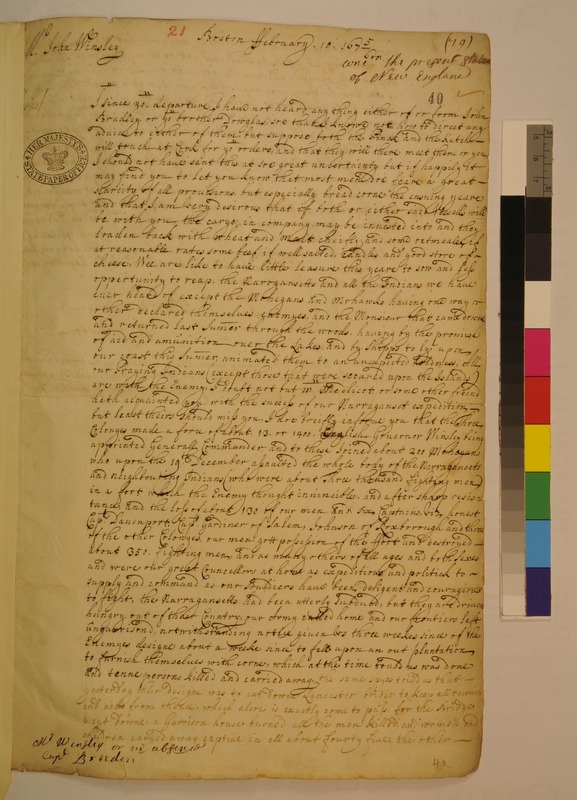 21
(19)
Mr. John Winsley
Boston ffebruary. 10. 1675
the present State
of New England
40
HER MAJESTY'S STATE PAPER OFFICE
Sr.
Since yor. departure I have not heard any thing either of or from John
Bradley or yor brother Dowglas, so that I know not how to direct any
advice to either of them: but suppose both the Pinck and the Ketch
will touch at for yor orders and that they will there meet them or you
I should not have sent this at so great uncertainty but if happily it
may find you to let you know that most men doe feare a great
scarcity of all provisions but especially bread corne the ensuing yeare
and that I am very desirous that if both or either said Vessels will
be with you, the cargoes in company may be invested into and they
loaden back with wheat and Malt cheifly, and some oatmeale, if
at reasonable rates some beef if well salted, Candles and good store of
cheese. Wee are like to have little leasure this yeare to sow and less
opportunity to reap, the Narogansetts and all the Indians we have
ever heard of except the Mohegans and Mohawks having one way or
other declared themselves enimyes, and the Monsieur that came downe
and returned last Sumer through the woods. having by the promise
of aid and amunition over the Lakes, and by Shipps to ly upon
our coast this Sumer animated them to an unexpected boldness, All
our Praying Indians (except those that were secured upon the Islands)
are with the Enemy. I doubt not but mr Medlicot or some other friend
hath acquainted you with the success of our Narraganset expedition
but least theirs should miss you I doe breifly informe you that the three
Colonyes made a force of about 13 or 1400 English Governor Winsley being
appointed Generall Commander and to these joined about 200 Mohegans
who upon the 19th December assaulted the whole body of the Narragansets
and neighbouring Indians (who were about three thousand fighting men)
in a fort which the Enemy thought invincible. and after sharp resis-
tance, and the loss of about 130 of our men and Six Captains viz. honest
Capt. Davenport, Capt Gardiner of Salem, Johnson of Roxborough and three
of the other Colonyes. our men gott possession of the ffort and destroyed
about 350 fighting men, and as many others of all ages and both sexes
and were our great Councellors at home as expeditious and politick to
supply and command as our Souldiers have been deligent and couragious
to fight, the Narragansetts had been utterly Subdued, but they are driven
hungry out of their Country, our Army called home and our frontiers left
ungarrisond, notwithstanding notice given us three weekes since of the
Enimyes designe about a weeke since to fall upon an out plantation
to furnish themselves with corne, which at the time told us was done
and tenne persons killed and carried away. The same sayes told us that
yesterday their designe was to cut downe Lancaster bridge to keep all recovery
and aids from thence which alsoe is exactly come to pass. for the bridge
cut downe a Garrison house burned all the men killed and women and
children carryed away captive in all about fourty five: the other
Mr Winsley or in absence
Capt. Breeden
40